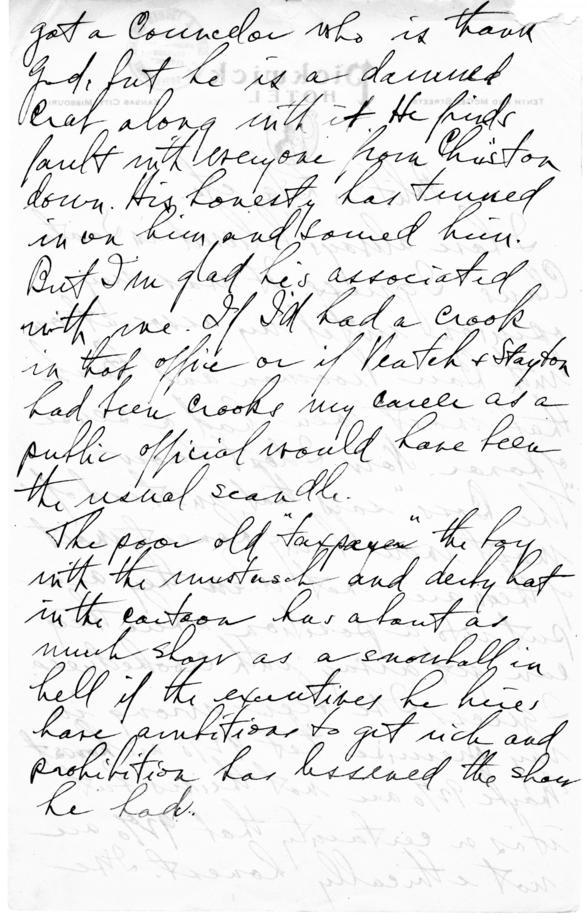 got a Councelor who is thank
God, but he is a damned
Crab along with it. He finds
fault with everyone from Christ on
down. His honesty has turned
in on him and soured him.
But I'm glad he's associated
with me. If I'd had a crook
in that office or if Veatch & Stayton
had been crooks my career as a
public official would have been
the usual scandle.
The poor old "taxpayer" the boy
with the mustach and derby hat
in the cartoon has about as
much show as a snowball in
hell if the executives he hires
have ambitions to get rich and
prohibition has lessened the show
he had.